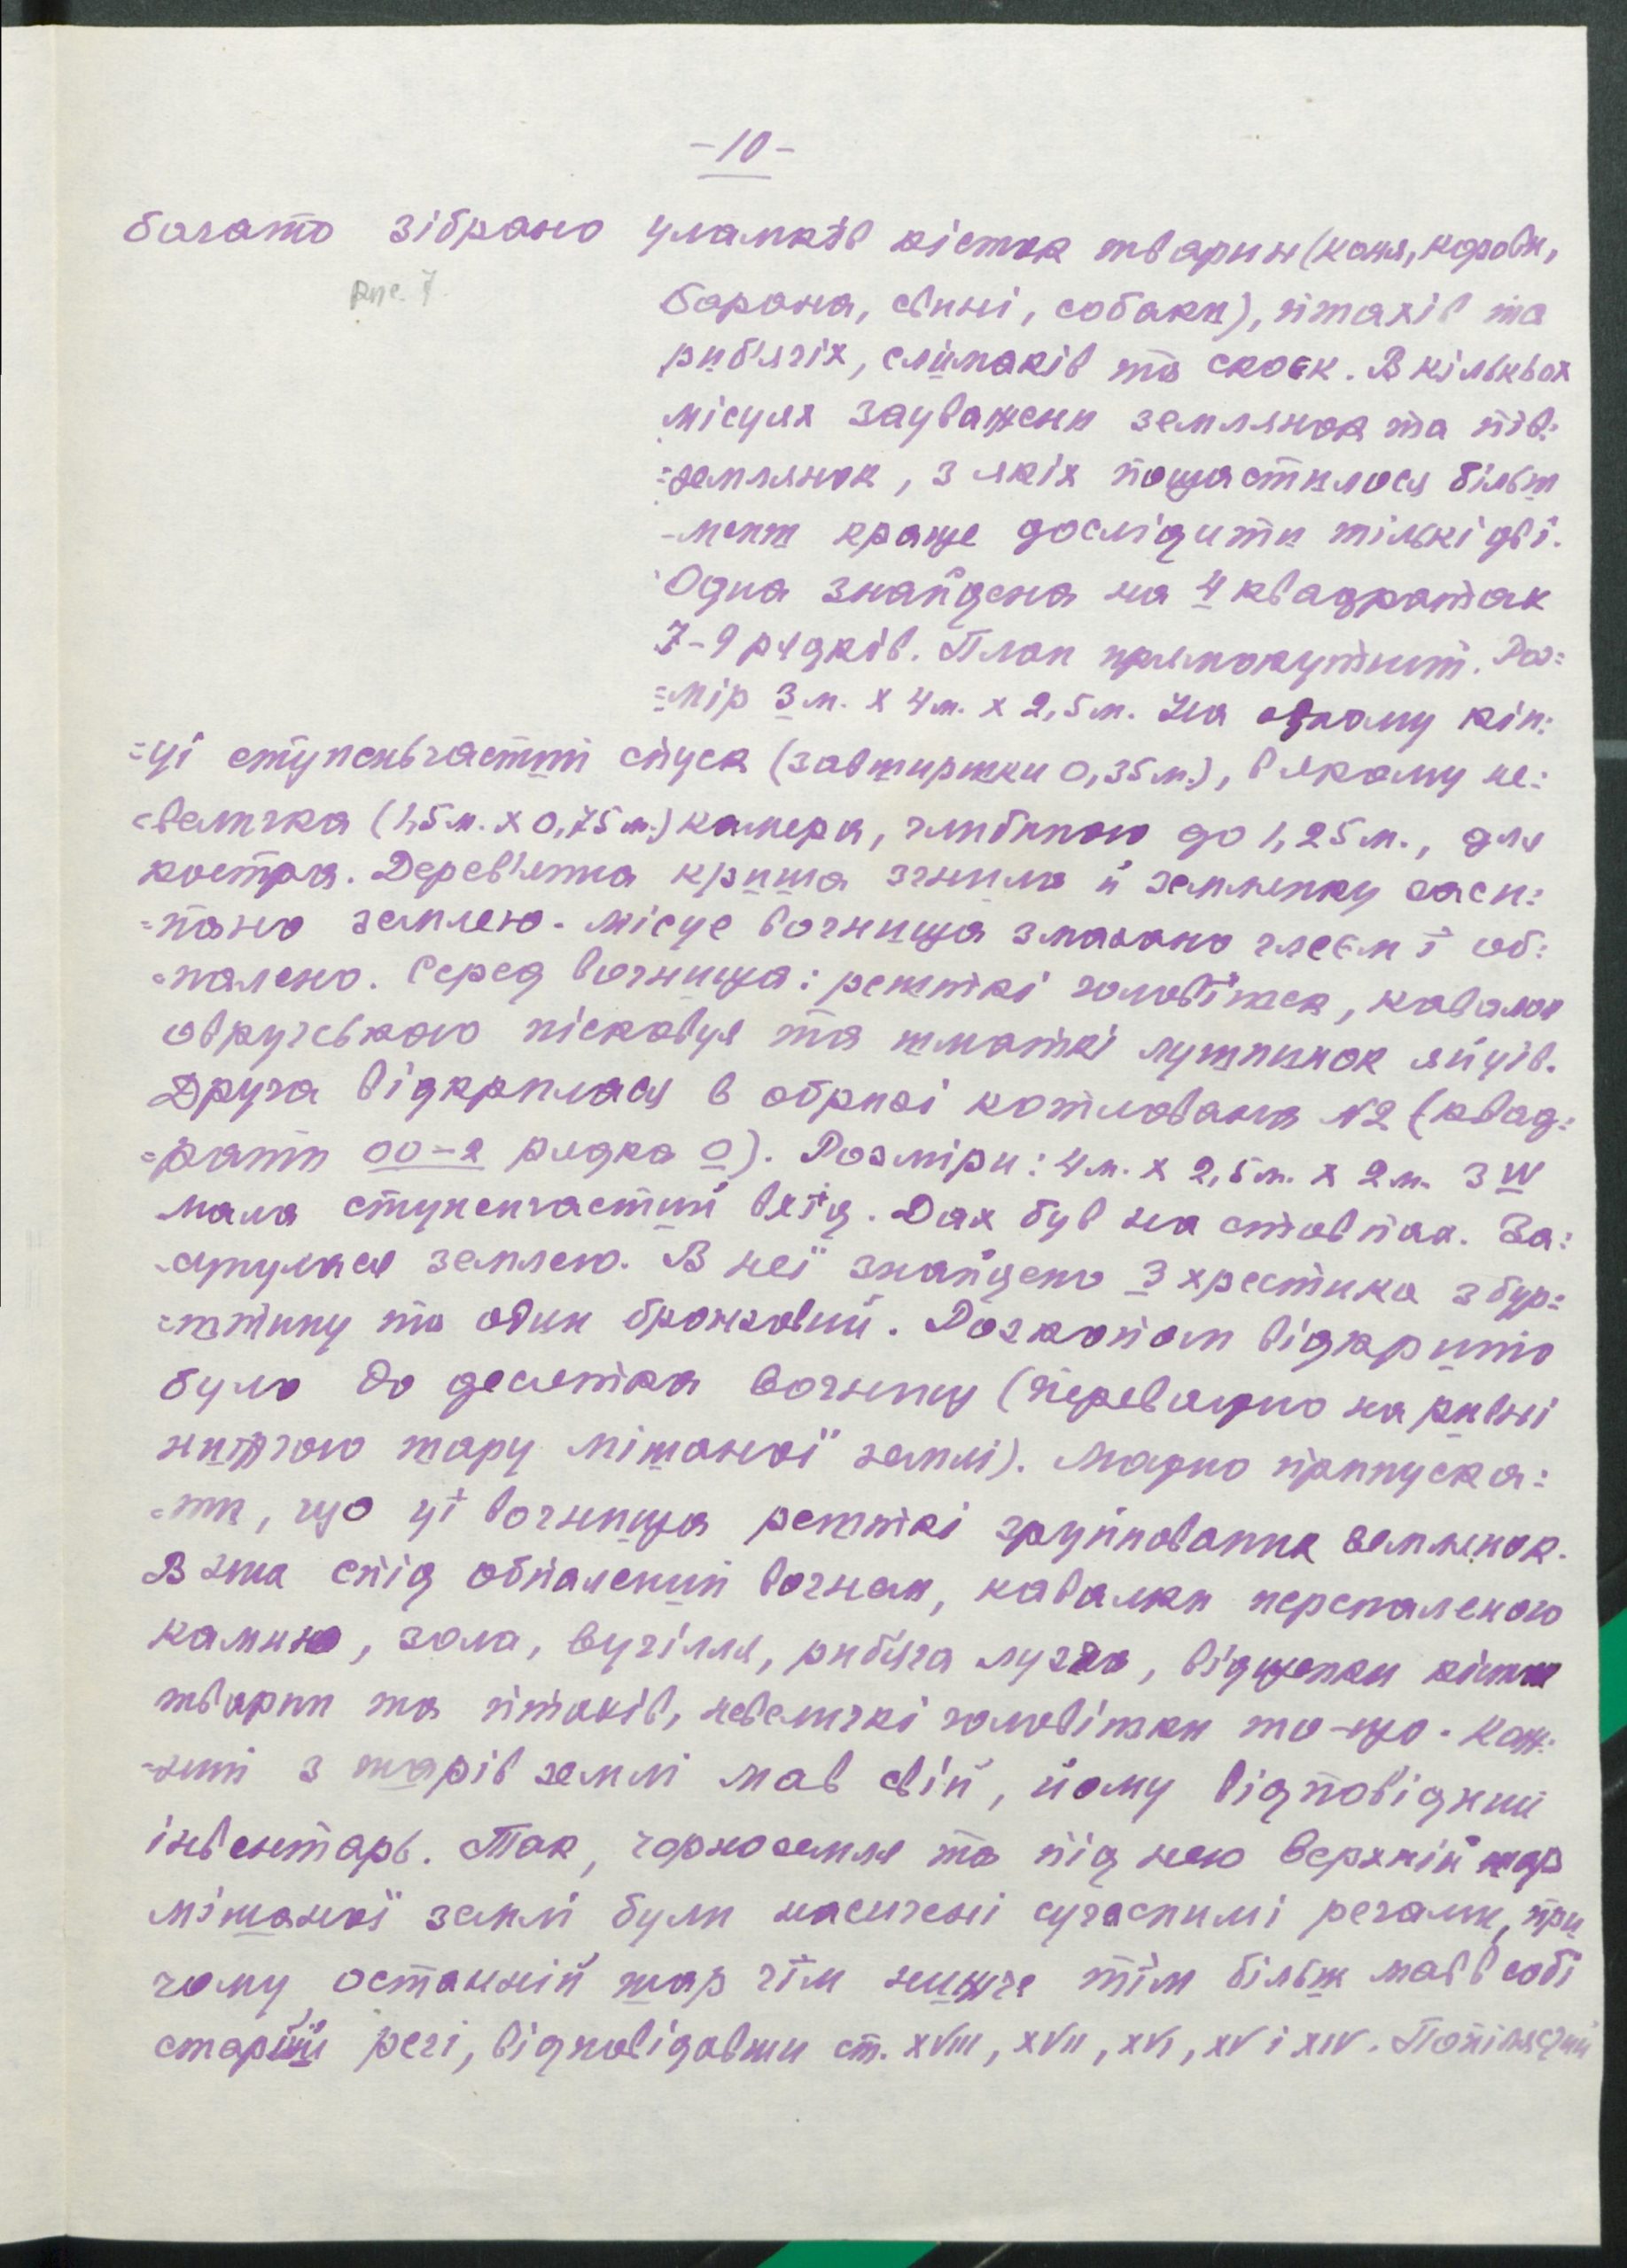 -10-
багато зібрано уламків кісток тварин (коня, корови,
рис. 7
барана, свині, собаки), птахів та
риб'ячіх, слімаків та скоєк. В кількьох
місцях зауважени землянок та пів:
=землянок, з якіх пощастилося більш
-менш краще дослідити тількі дві.
Одна знайдена на 4 квадратах
7-9 рядків. План прямокутний. Роз=
=мір 3 м. х 4 м. х 2,5 м. На одному кін:
=ці ступеньчастий спуск (завширшки 0,35 м.), в якому не:
=величка (1,5 м. х 0,75 м.) камера, глибиною до 1,25 м., для
костра. Дерев'яна криша згнила й землянку заси:
=пано землею. Місце вогнища змазано глеєм і об:
=палено. Серед вогнища: решткі головішек, кавалок
овручського пісковця та шматкі лушпинок яйців.
Друга відкрилася в обризі котлована №2 (квад:
=рати 00-2 рядка 0). Розміри: 4 м. х 2,5 м. х 2 м. З W
мала ступенчастий вхід. Дах був на стовпах. За:
-сунулася землею. В неї знайдено 3 хрестика з бур:
=штину та один бронзовий. Розкопом відкрито
було до десятка вогнищ (переважно на ривні
нижчого шару мішаної землі). Можно припуска:
=ти, що ці вогнища решткі зруйнованих землянок.
В них спід обпалений вогнем, кавалки перепаленого
каміння, зола, вугілля, риб'яча луска, відщепки кісток
тварин та птахів, невеличкі головішки то-що. Кож:
-ний з шарів землі мав свій, йому відповідний
інвентарь. Так, чорноземля та під нею верхній шар
мішаної землі були насичені сучаснимі речами, при
чому останній шар чім нижче тім більш мав в собі
старіші речі, відповідавши ст. XVIII, XVII, XVI, XV і XIV. Попілясний